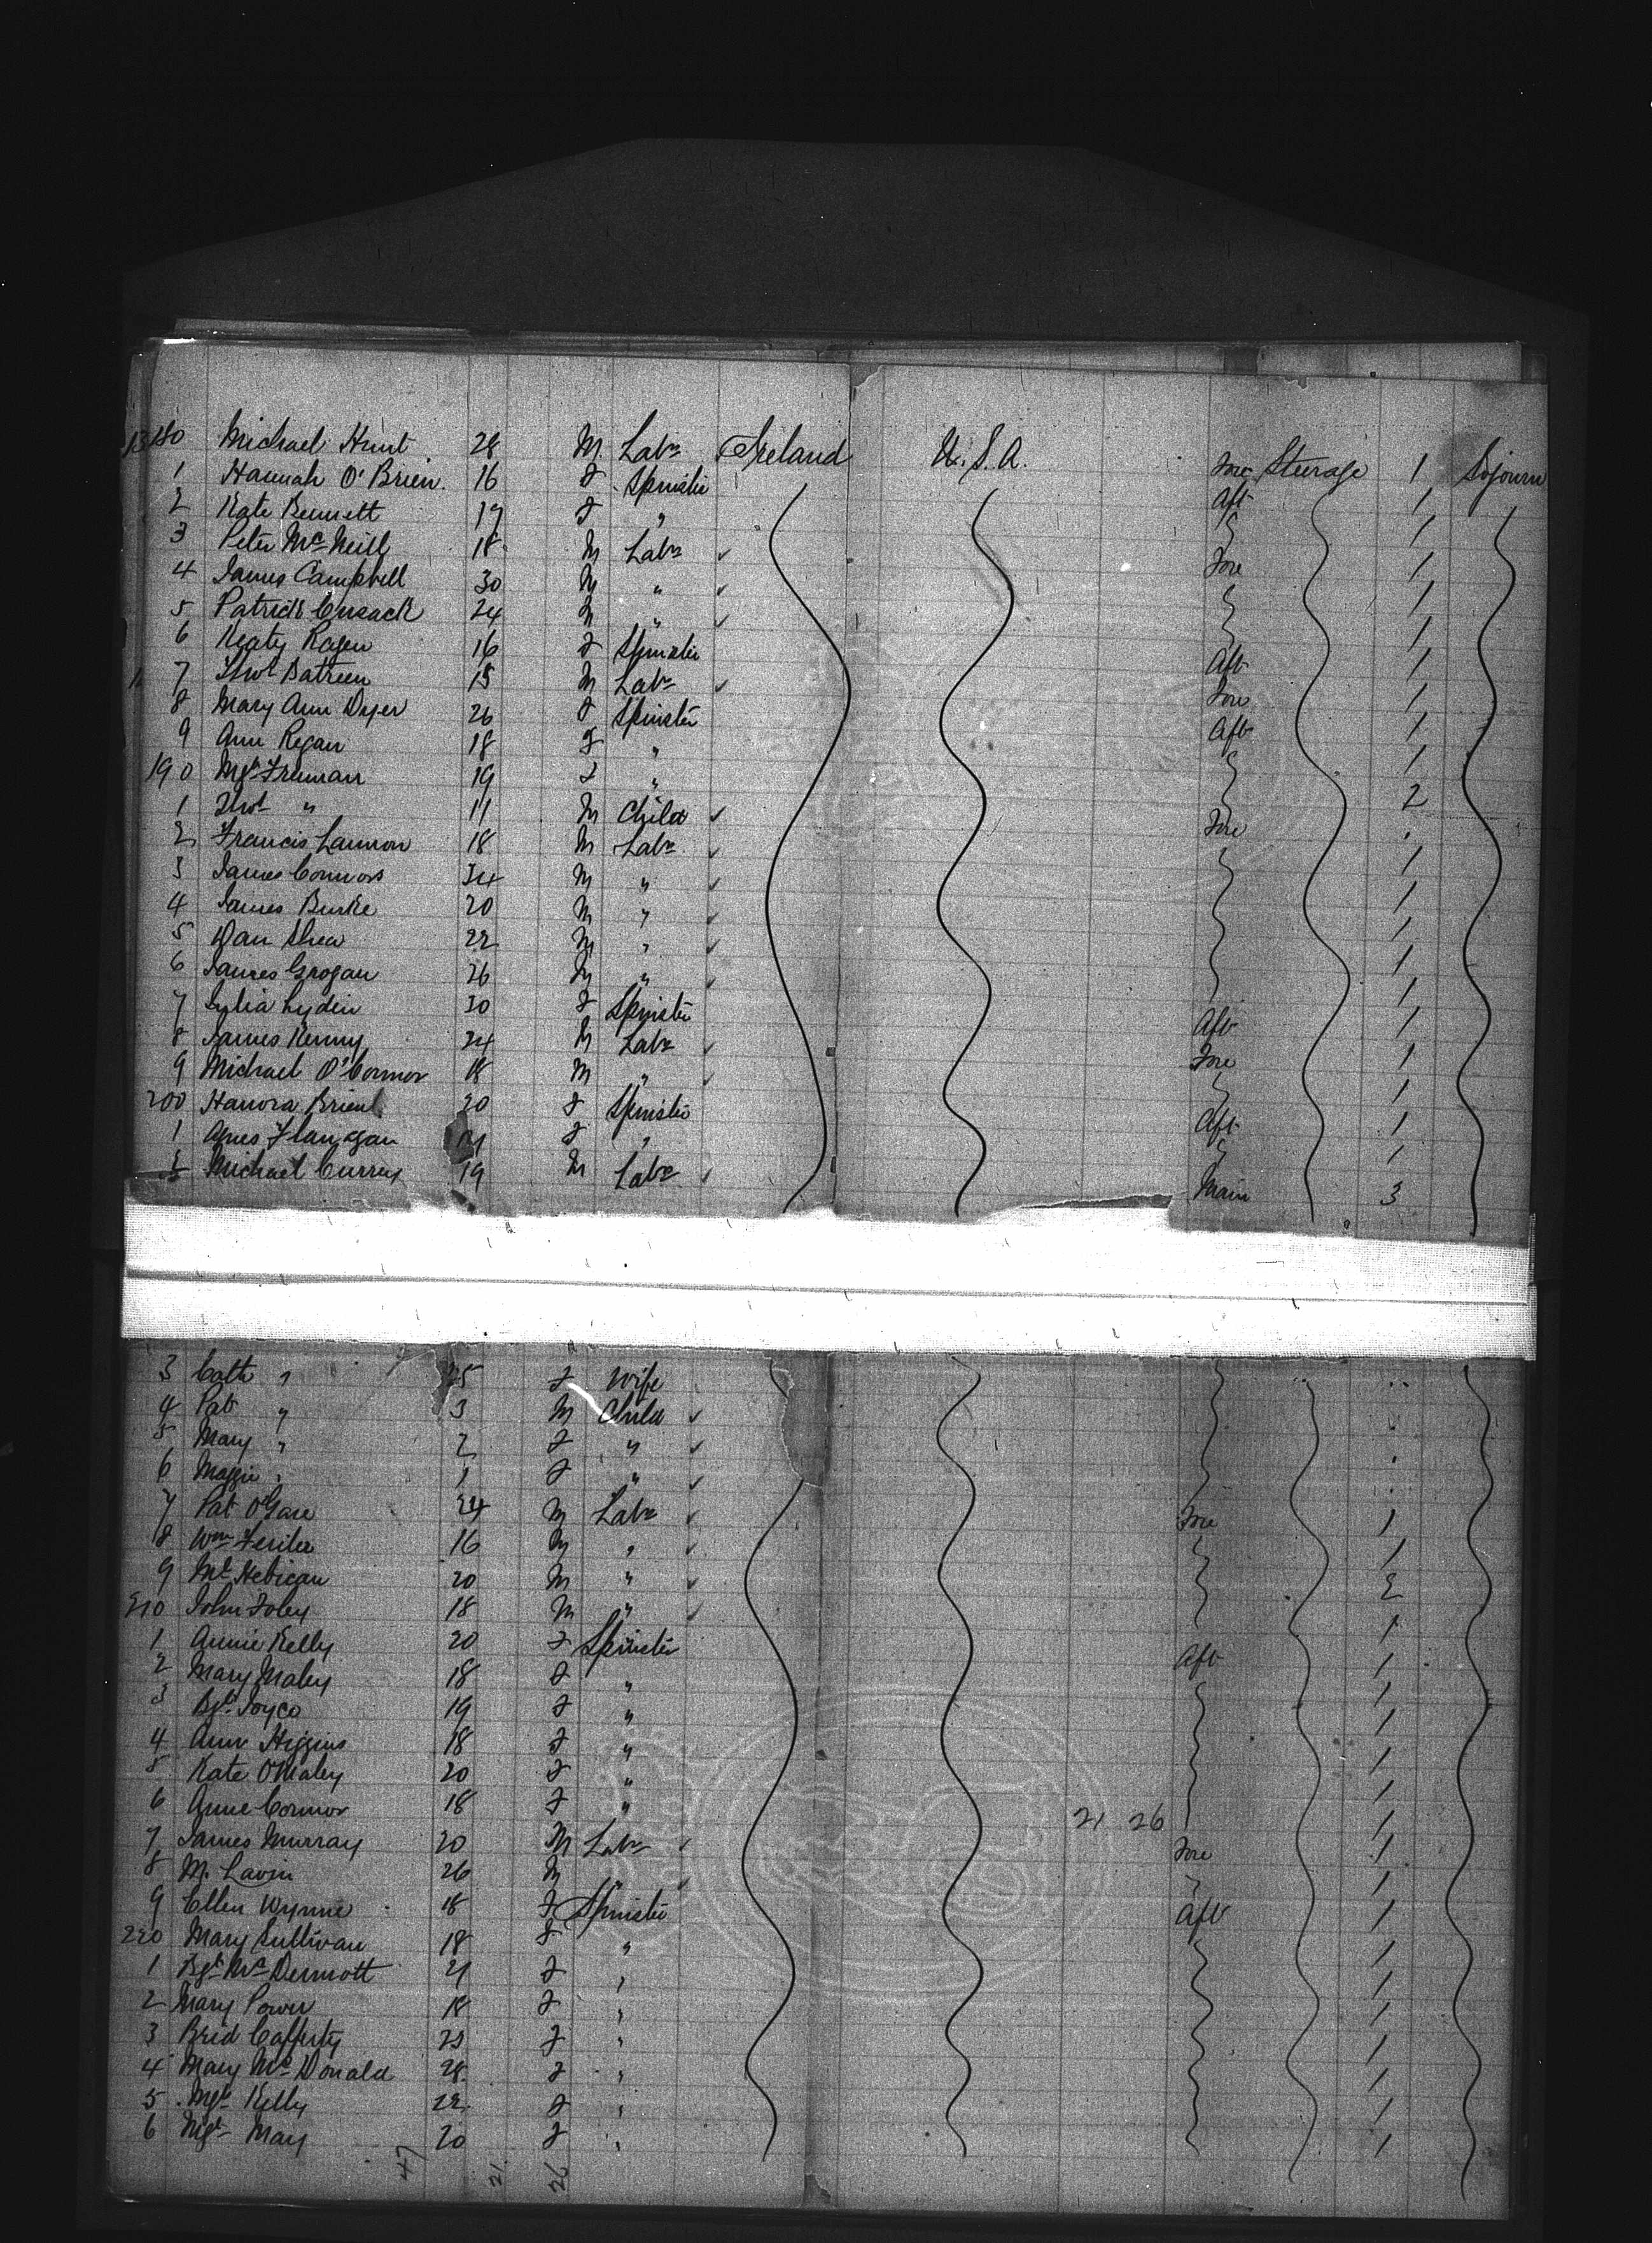 180 Michael Hunt 28 M Labr Ireland U.S.A. Fore Steerage 1 Sojourn
1 Hannah O'Brien 16 F Spinster Aft 1
2 Kate Bennett 19 F " 1
3 Peter McNeill 18 M Labr ✓ Fore 1
4 James Campbell 30 M " ✓ 1
5 Patrick Cusack 24 M " ✓ 1
6 Keaty 16 F Spinster Aft 1
7 Thos 15 M Labr ✓ Fore 1
8 Mary Ann Dyer 26 F Spinster Aft 1
9 Ann Regan 18 F " 1
190 Mgt Freeman 19 F " 2
1 Thos " 11 M Child ✓
2 Francis Lannon 18 M Labr ✓ Fore 1
3 James Connors 34 M " ✓ 1
4 James Burke 20 M " ✓ 1
5 Dan Shea 22 M " ✓ 1
6 James Grogan 26 M " ✓ 1
7 Lydin 30 F Spinster Aft 1
8 James Kenny 24 M Labr ✓ Fore 1
9 Michael O'Connor 18 M " ✓ 1
200 Hanora Brien 20 F Spinster Aft 1
1 Agnes Flanagan F " 1
2 Michael Currey 19 M Labr ✓ Main 3
3 Cath " F Wife
4 Pat " 3 M Child ✓
5 Mary " 2 F " ✓
6 Maggie " 1 F " ✓
7 Pat O'Gara 24 M Labr ✓ Fore 1
8 Wm 16 M " ✓ 1
9 Ml 20 M " ✓ 2
210 John Foley 18 M " ✓ 1
1 Annie Kelly 20 F Spinster Aft 1
2 Mary Maley 18 F " 1
3 Bgt Joyce 19 F " 1
4 Ann Higgins 18 F " 1
5 Kate O'Maley 20 F " 1
6 Anne Connor 18 F " 21 26 1
7 James Murray 20 M Labr ✓ Fore 1
8 M. Lavin 26 M " ✓ 1
9 Ellen Wynne 18 F Spinster Aft 1
220 Mary Sullivan 18 F " 1
1 Bgt McDermott 21 F " 1
2 Mary Power 18 F " 1
3 Brid Cafferty F " 1
4 Mary McDonald 28 F " 1
5 Mgt Kelly 22 F " 1
6 Mgt May 20 F " 1
47 21 26